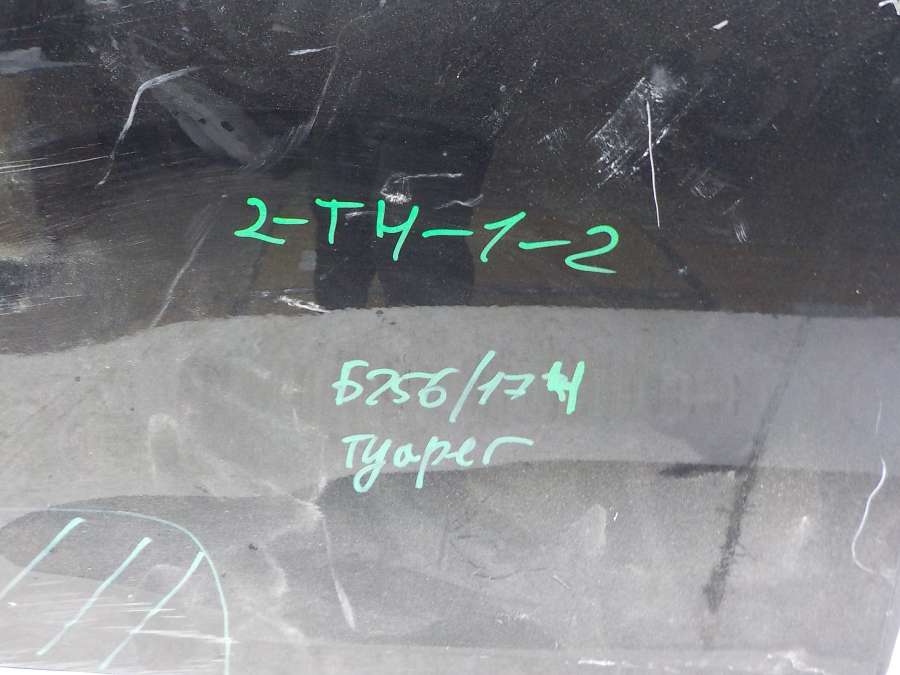 2-ТН-1-2
Б256/17Н
Туарег